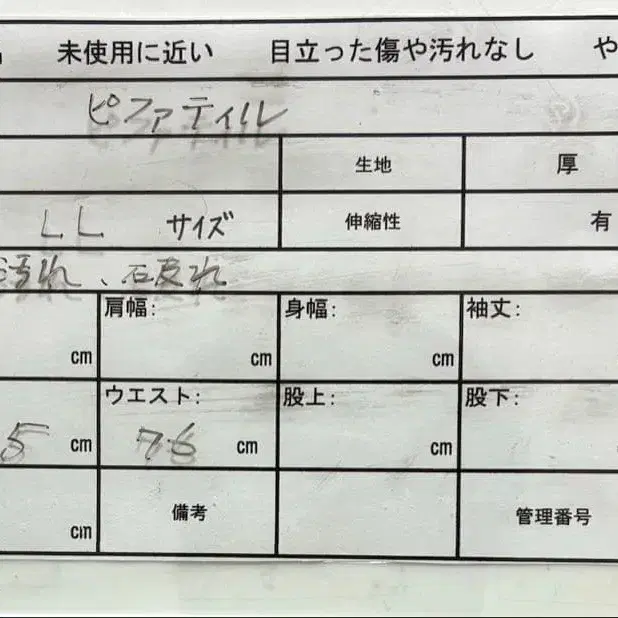 未使用に近い 目立った傷や汚れなし や
ピファティル
生地 厚
LL サイズ 伸縮性 有
汚れ、破れ
肩幅: 身幅: 袖丈:
cm cm cm
ウエスト: 股上: 股下:
5 cm 76 cm cm
備考 管理番号
cm